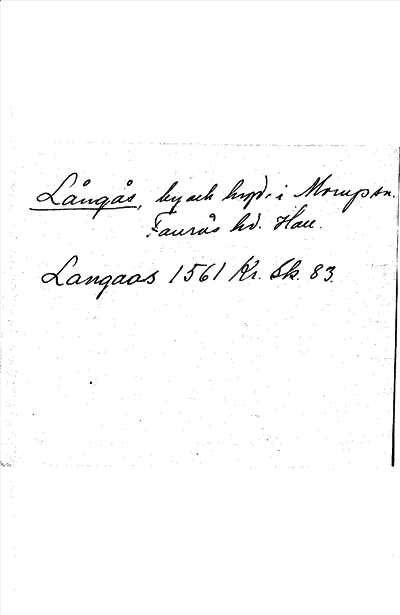 Långås, by och hvd. i Morup sn.
Faurås hd. Hall.
Langaas 1561 Kr. Sk. 83.